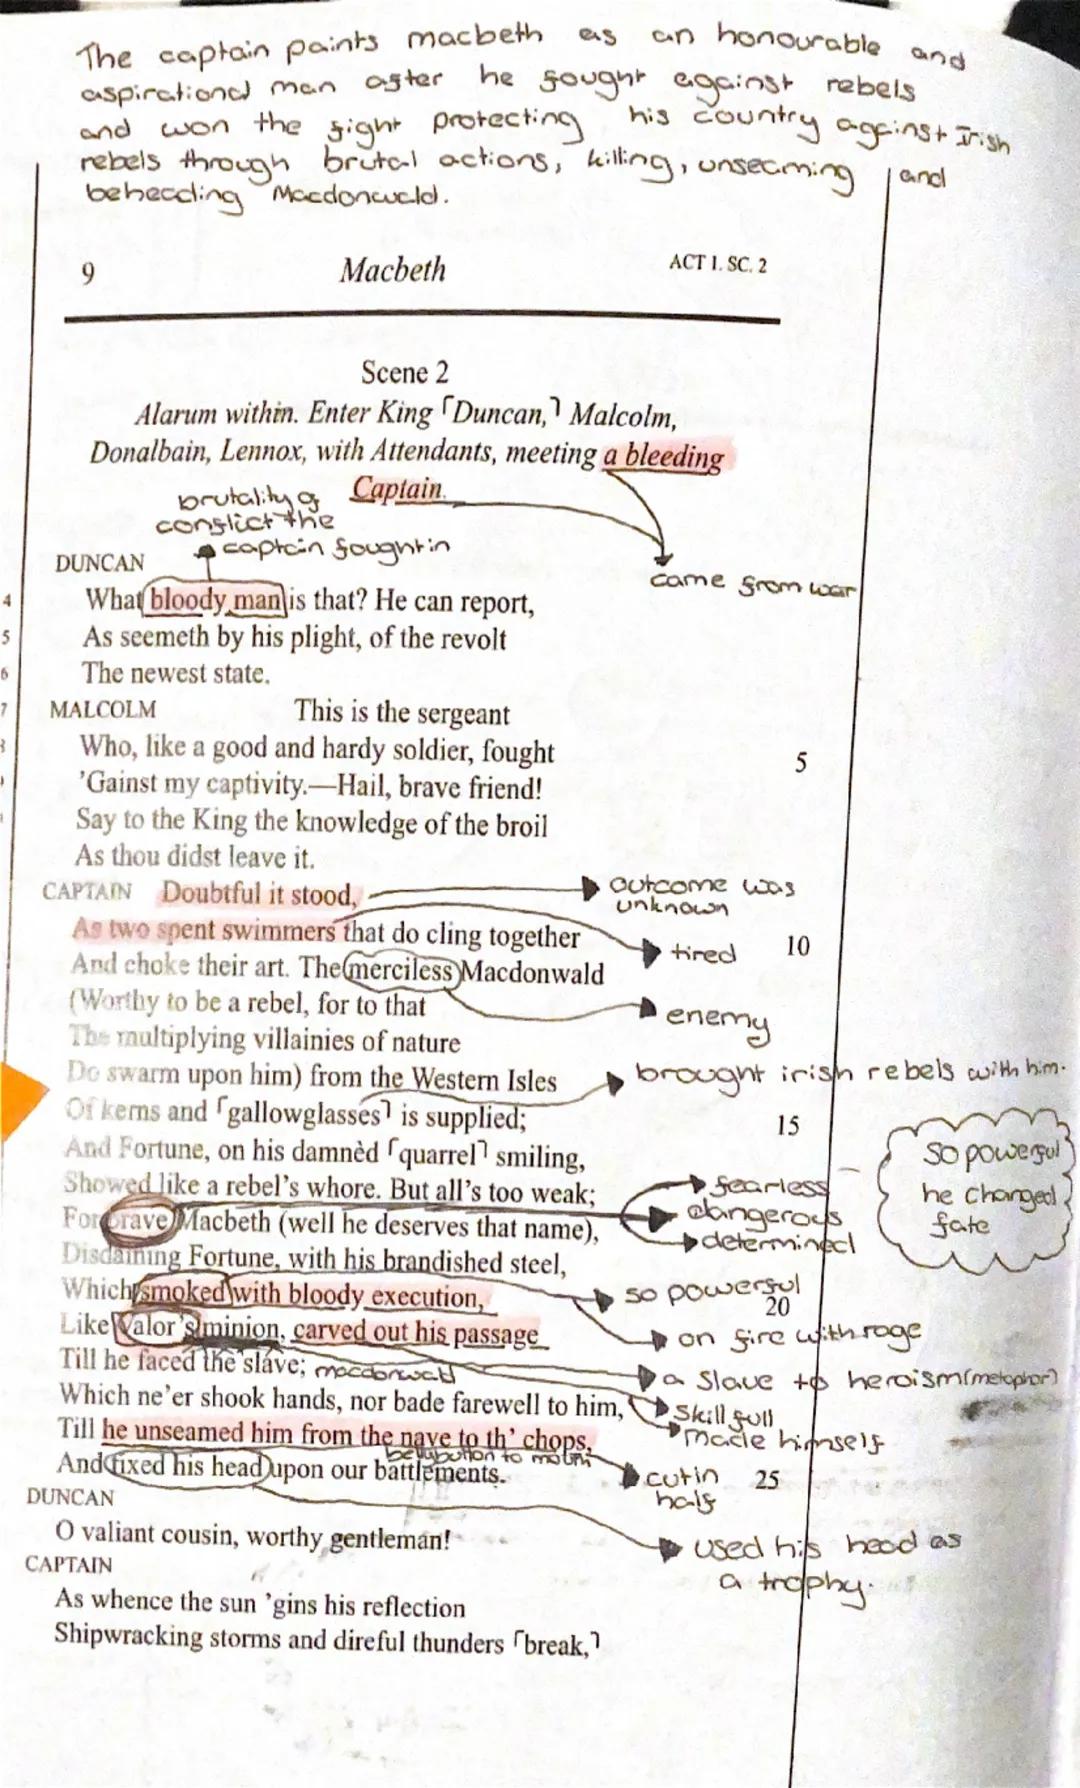 The captain paints macbeth as an honourable and
aspirational man after he fought against rebels
and won the fight protecting his country against Irish
rebels through brutal actions, killing, unseaming and
beheading Macdonwald.
9 Macbeth ACT 1. SC. 2
Scene 2
Alarum within. Enter King ⌜Duncan,⌝ Malcolm,
Donalbain, Lennox, with Attendants, meeting a bleeding
Captain.
brutality of
conflict the
captain fought in
came from war
DUNCAN
4 What bloody man is that? He can report,
5 As seemeth by his plight, of the revolt
6 The newest state.
7 MALCOLM This is the sergeant
Who, like a good and hardy soldier, fought 5
'Gainst my captivity.—Hail, brave friend!
Say to the King the knowledge of the broil
As thou didst leave it.
CAPTAIN Doubtful it stood,
outcome was
unknown
As two spent swimmers that do cling together 10
tired
And choke their art. The merciless Macdonwald
(Worthy to be a rebel, for to that
enemy
The multiplying villainies of nature
Do swarm upon him) from the Western Isles
brought irish rebels with him.
Of kerns and ⌜gallowglasses⌝ is supplied; 15
And Fortune, on his damnèd ⌜quarrel⌝ smiling,
Showed like a rebel's whore. But all's too weak;
fearless
dangerous
determined
so powerful
he changed
fate
For brave Macbeth (well he deserves that name),
Disdaining Fortune, with his brandished steel,
Which smoked with bloody execution, 20
so powerful
on fire with rage
Like Valor's minion, carved out his passage
a slave to heroism (metaphor)
Till he faced the slave; macdonwald
Which ne'er shook hands, nor bade farewell to him,
Skillfull
made himself
Till he unseamed him from the nave to th' chops,
bellybutton to mouth
cut in
half
And fixed his head upon our battlements. 25
used his head as
a trophy.
DUNCAN
O valiant cousin, worthy gentleman!
CAPTAIN
As whence the sun 'gins his reflection
Shipwracking storms and direful thunders ⌜break,⌝